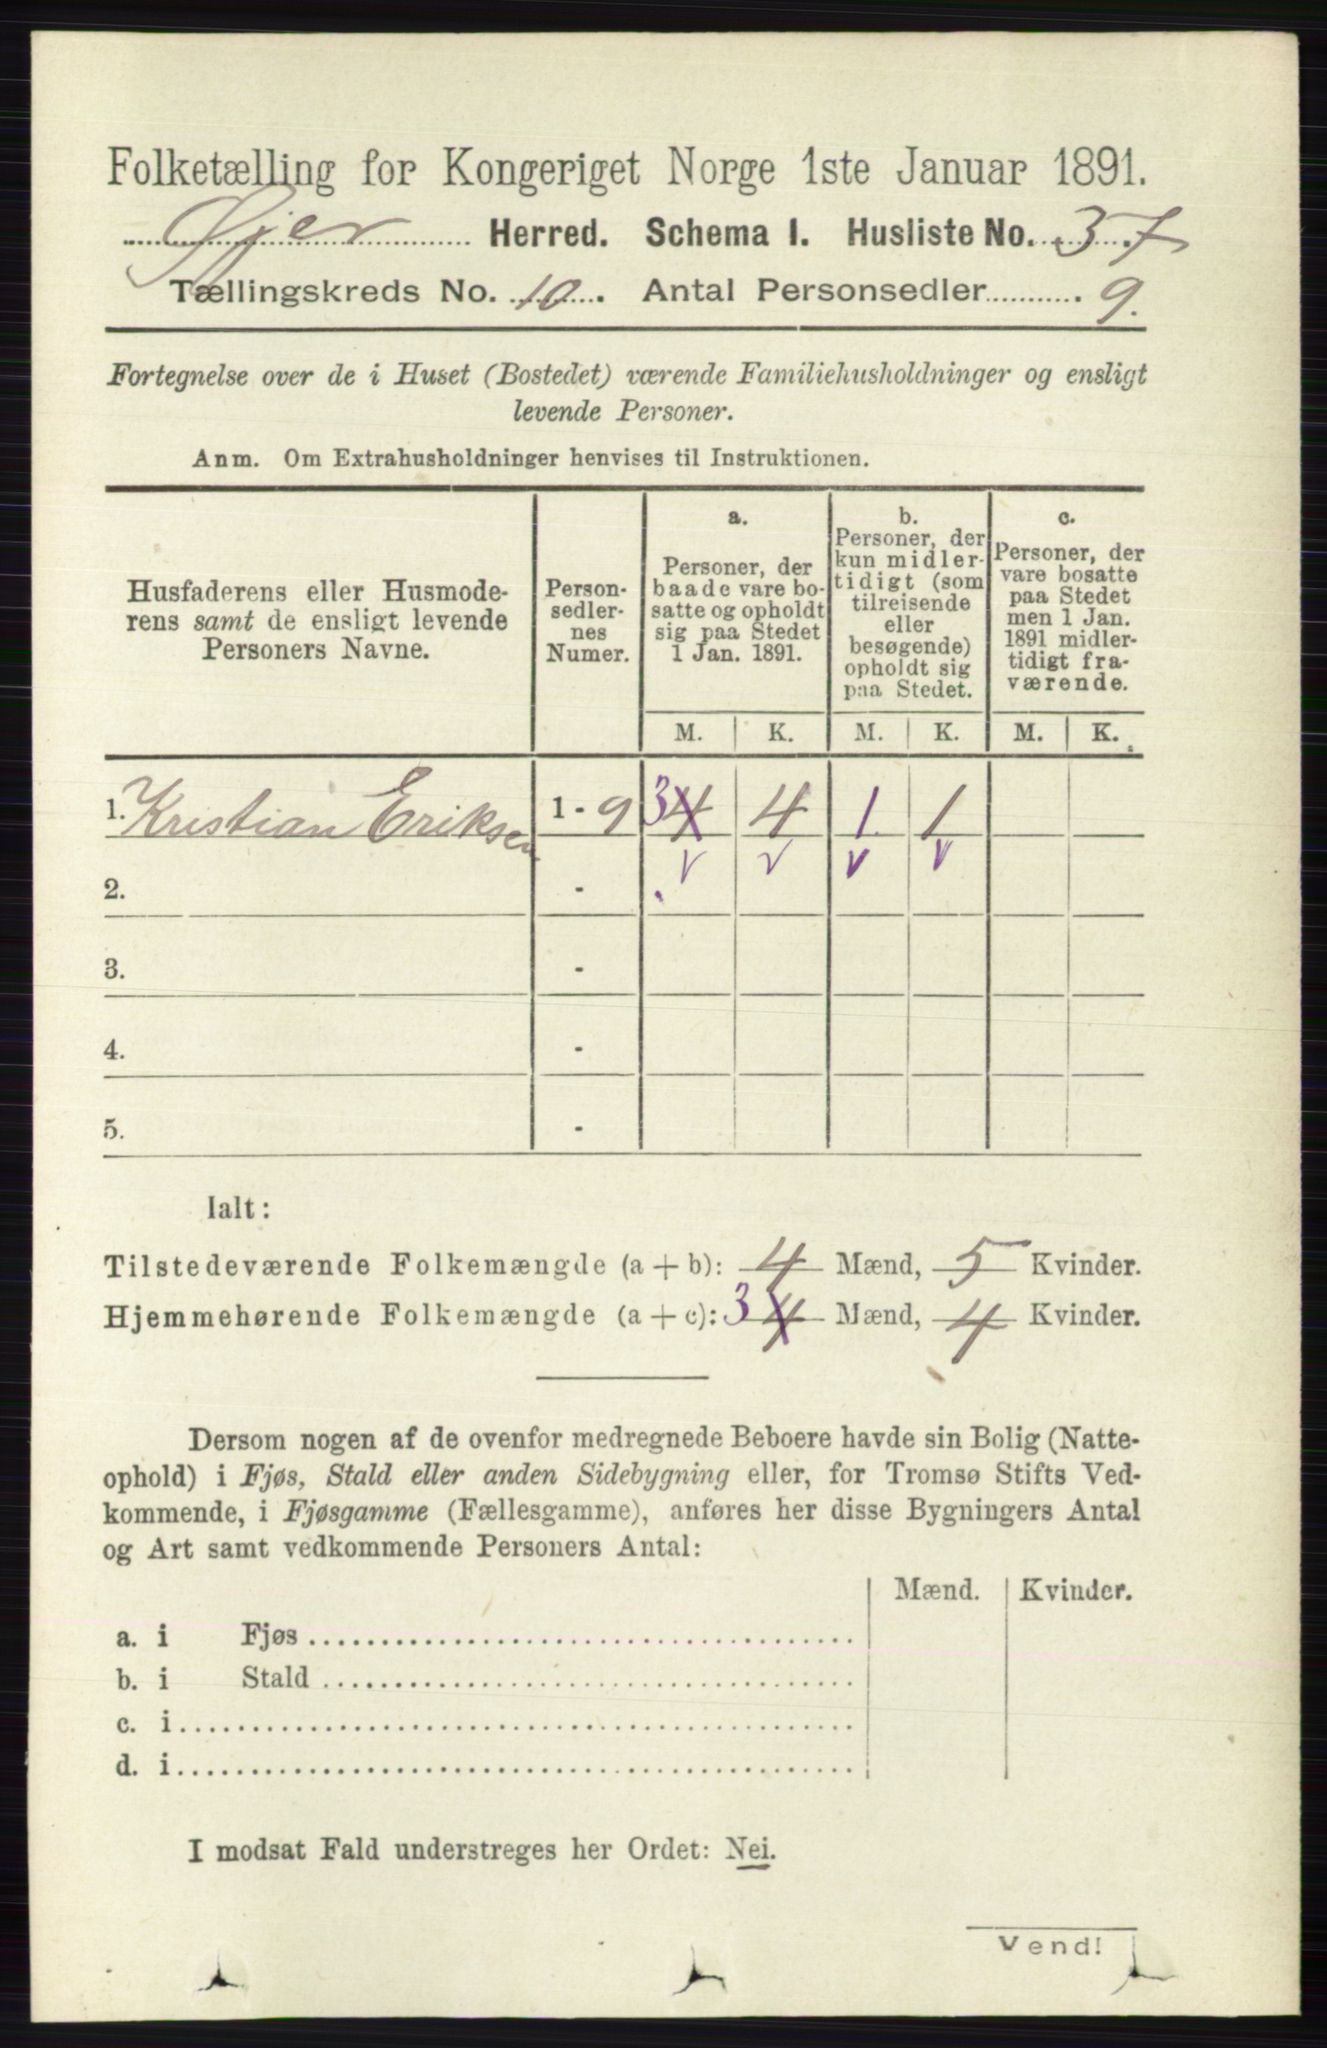 Folketælling for Kongeriget Norge 1ste Januar 1891.
Øjer Herred. Schema I. Husliste No. 37
Tællingskreds No. 10. Antal Personsedler 9.
Fortegnelse over de i Huset (Bostedet) værende Familiehusholdninger og ensligt
levende Personer.
Anm. Om Extrahusholdninger henvises til Instruktionen.
Husfaderens eller Husmode-
rens samt de ensligt levende
Personers Navne.
Person-
sedler-
nes
Numer.
a.
Personer, der
baade vare bo-
satte og opholdt
sig paa Stedet
1 Jan. 1891.
b.
Personer, der
kun midler-
tidigt (som
tilreisende
eller
besøgende)
opholdt sig
paa Stedet.
c.
Personer, der
vare bosatte
paa Stedet
men 1 Jan.
1891 midler-
tidigt fra-
værende.
M. K. M. K. M. K.
1. Kristian Eriksen 1 - 9 3 4 4 1 1
v v v v
2. -
3. -
4. -
5. -
Ialt:
Tilstedeværende Folkemængde (a + b): 4 Mænd, 5 Kvinder.
Hjemmehørende Folkemængde (a + c): 3 4 Mænd, 4 Kvinder.
Dersom nogen af de ovenfor medregnede Beboere havde sin Bolig (Natte-
ophold) i Fjøs, Stald eller anden Sidebygning eller, for Tromsø Stifts Ved-
kommende, i Fjøsgamme (Fællesgamme), anføres her disse Bygningers Antal
og Art samt vedkommende Personers Antal:
Mænd. Kvinder.
a. i Fjøs
b. i Stald
c. i
d. i
I modsat Fald understreges her Ordet: Nei.
Vend!